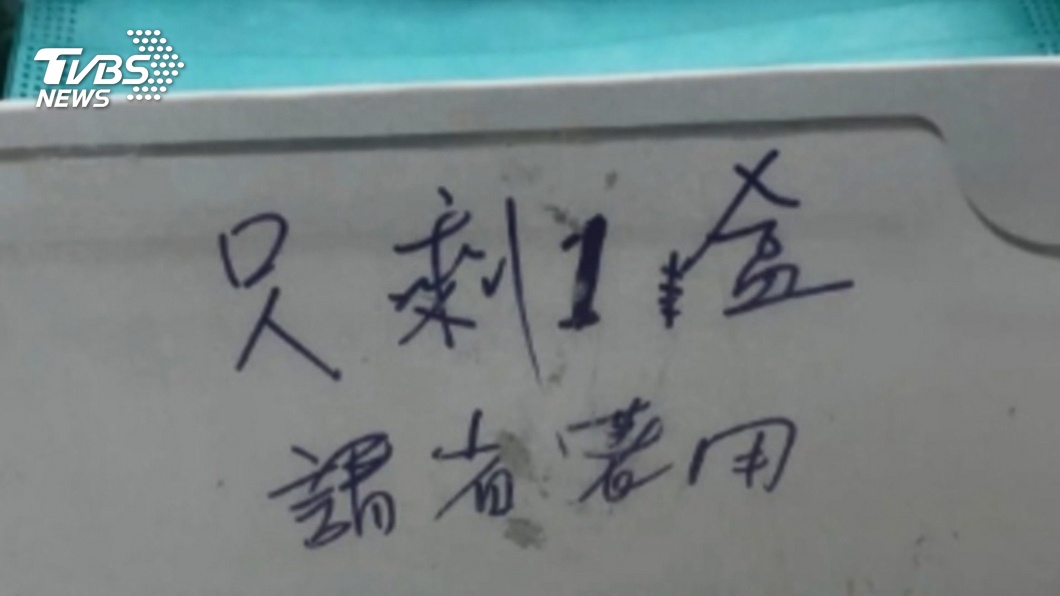 TVBS
NEWS
只剩1盒
請省著用